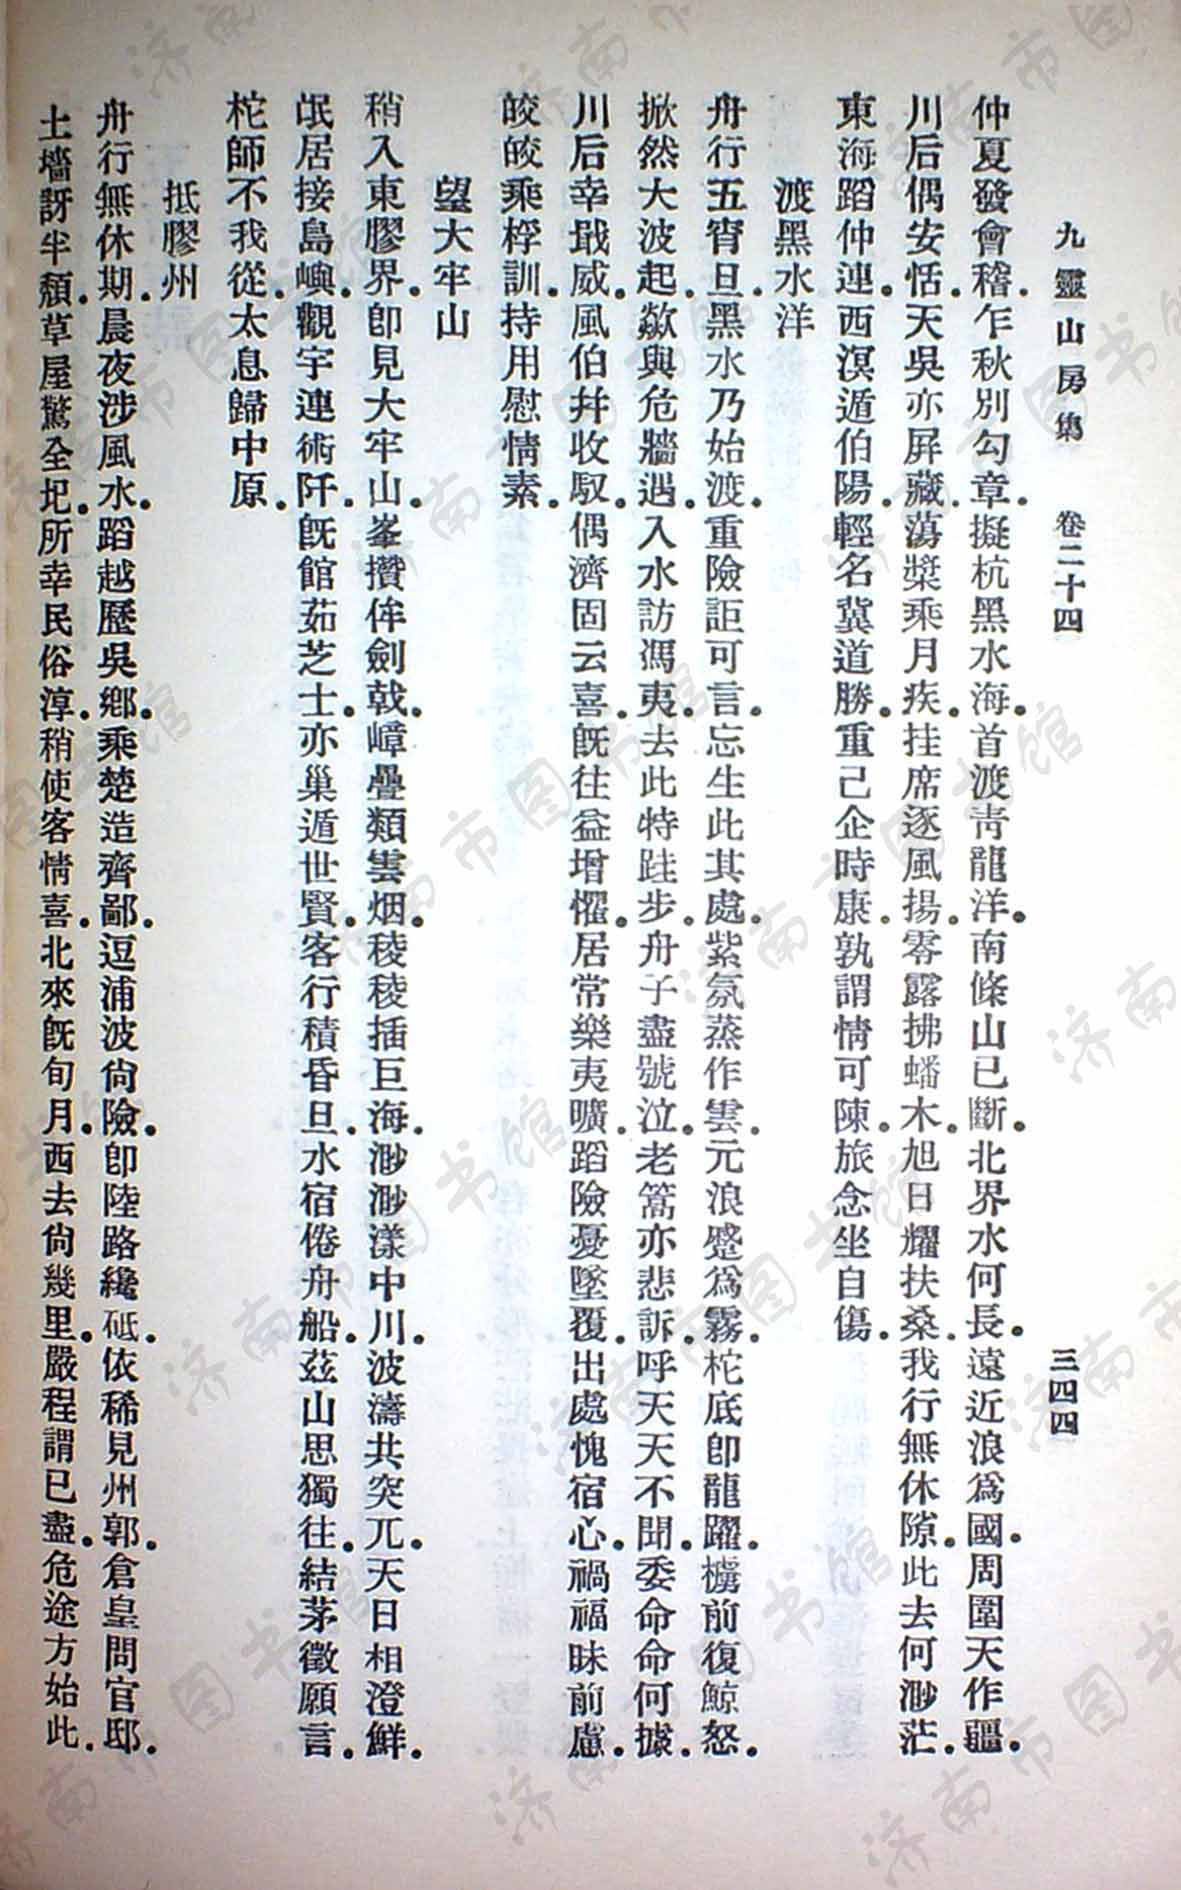 九靈山房集　卷二十四　三四四
仲夏發會稽．乍秋別勾章．擬杭黑水海．首渡青龍洋．南條山已斷．北界水何長．遠近浪為國．周圍天作疆．
川后偶安恬．天吳亦屏藏．蕩槳乘月疾．挂席逐風揚．零露拂蟠木．旭日耀扶桑．我行無休隙．此去何渺茫．
東海蹈仲連．西溟遁伯陽．輕名冀道勝．重己企時康．孰謂情可陳．旅念坐自傷．
渡黑水洋
舟行五宵旦．黑水乃始渡．重險詎可言．忘生此其處．紫氛蒸作雲．元浪蹙為霧．柁底即龍躍．櫓前復鯨怒．
掀然大波起．歘與危牆遇．入水訪馮夷．去此特跬步．舟子盡號泣．老篙亦悲訴．呼天天不聞．委命命何據．
川后幸戢威．風伯幷收馭．偶濟固云喜．既往益增懼．居常樂夷曠．蹈險憂墜覆．出處愧宿心．禍福昧前慮．
皎皎乘桴訓．持用慰情素．
望大牢山
稍入東膠界．即見大牢山．峯攢侔劍戟．嶂疊類雲烟．稜稜插巨海．渺渺漾中川．波濤共突兀．天日相澄鮮．
氓居接島嶼．觀宇連術阡．既館茹芝士．亦巢遁世賢．客行積昏旦．水宿倦舟船．茲山思獨往．結茅徵願言．
柁師不我從．太息歸中原．
抵膠州
舟行無休期．晨夜涉風水．蹈越歷吳鄉．乘楚造齊鄙．逗浦波尙險．即陸路纔砥．依稀見州郭．倉皇問官邸．
土墻訝半頹．草屋驚全圮．所幸民俗淳．稍使客情喜．北來既旬月．西去尙幾里．嚴程謂已盡．危途方始此．
济南市图书馆